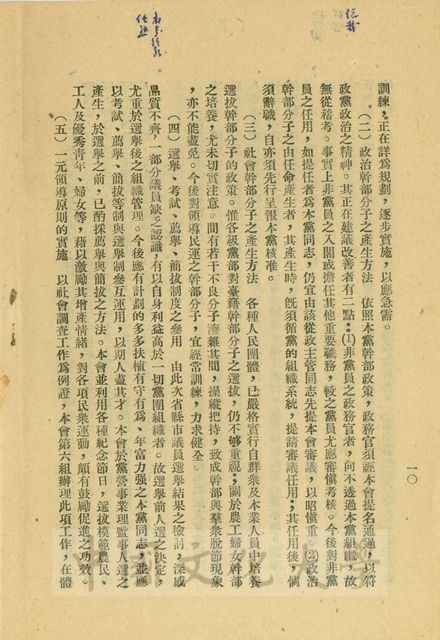 訓練,正在詳為規劃,逐步實施,以應急需。
(二) 政治幹部分子之產生方法 依照本黨幹部政策,政務官須經本會提名通過,以符
政黨政治之精神。其正在建議改善者有二點:(1)非黨員之政務官者,向不透過本黨組織,故
無從稽考。事實上非黨員之入閣或擔任其他重要職務,較之黨員尤應審慎考核。今後對非黨
員之任用,如提任者為本黨同志,仍宜由該從政主管同志先提本會審議,以昭慎重。(2)政治
幹部分子之由任命產生者,其產生時,既須循黨的組織系統,提請審議任用;其任用後,倘
須辭職,自亦須先行呈報本黨核准。
(三) 社會幹部分子之產生方法 各種人民團體,已嚴格實行自群衆及本業人員中培養
選拔幹部分子的政策。惟各級黨部對臺籍幹部分子之選拔,仍不够重視;關於農工婦女幹部
之培養,尤未切實注意。間有若干不良分子滲雜其間,操縱把持,致成幹部與羣衆脫節現象
,亦不能盡免。今後對領導民運之幹部分子,宜經常訓練,力求健全。
(四) 選舉、考試、薦舉、簡拔制度之叄用 由此次省縣市議員選舉結果之檢討,深感
品質不齊,一部分議員缺乏認識,有以自身利益高於一切黨團組織者。故選舉前人選之決定,
尤重於選舉後之組織管理。今後應有計劃的多多扶植有守有為、年富力强之本黨同志,並應
以考試、薦舉、簡拔等制與選舉制叄互運用,以期人盡其才。本會於黨營事業理監事人選之
產生,於選舉之前,已酌採薦舉與簡拔之方法。本會並利用各種紀念節日,選拔模範農民、
工人及優秀青年、婦女等,藉以激勵其增產情緒,對各項民衆運動,頗有鼓勵促進之功效。
(五) 一元領導原則的實施 以社會調查工作為例證,本會第六組辦理此項工作,在體
一〇
中國文化大學